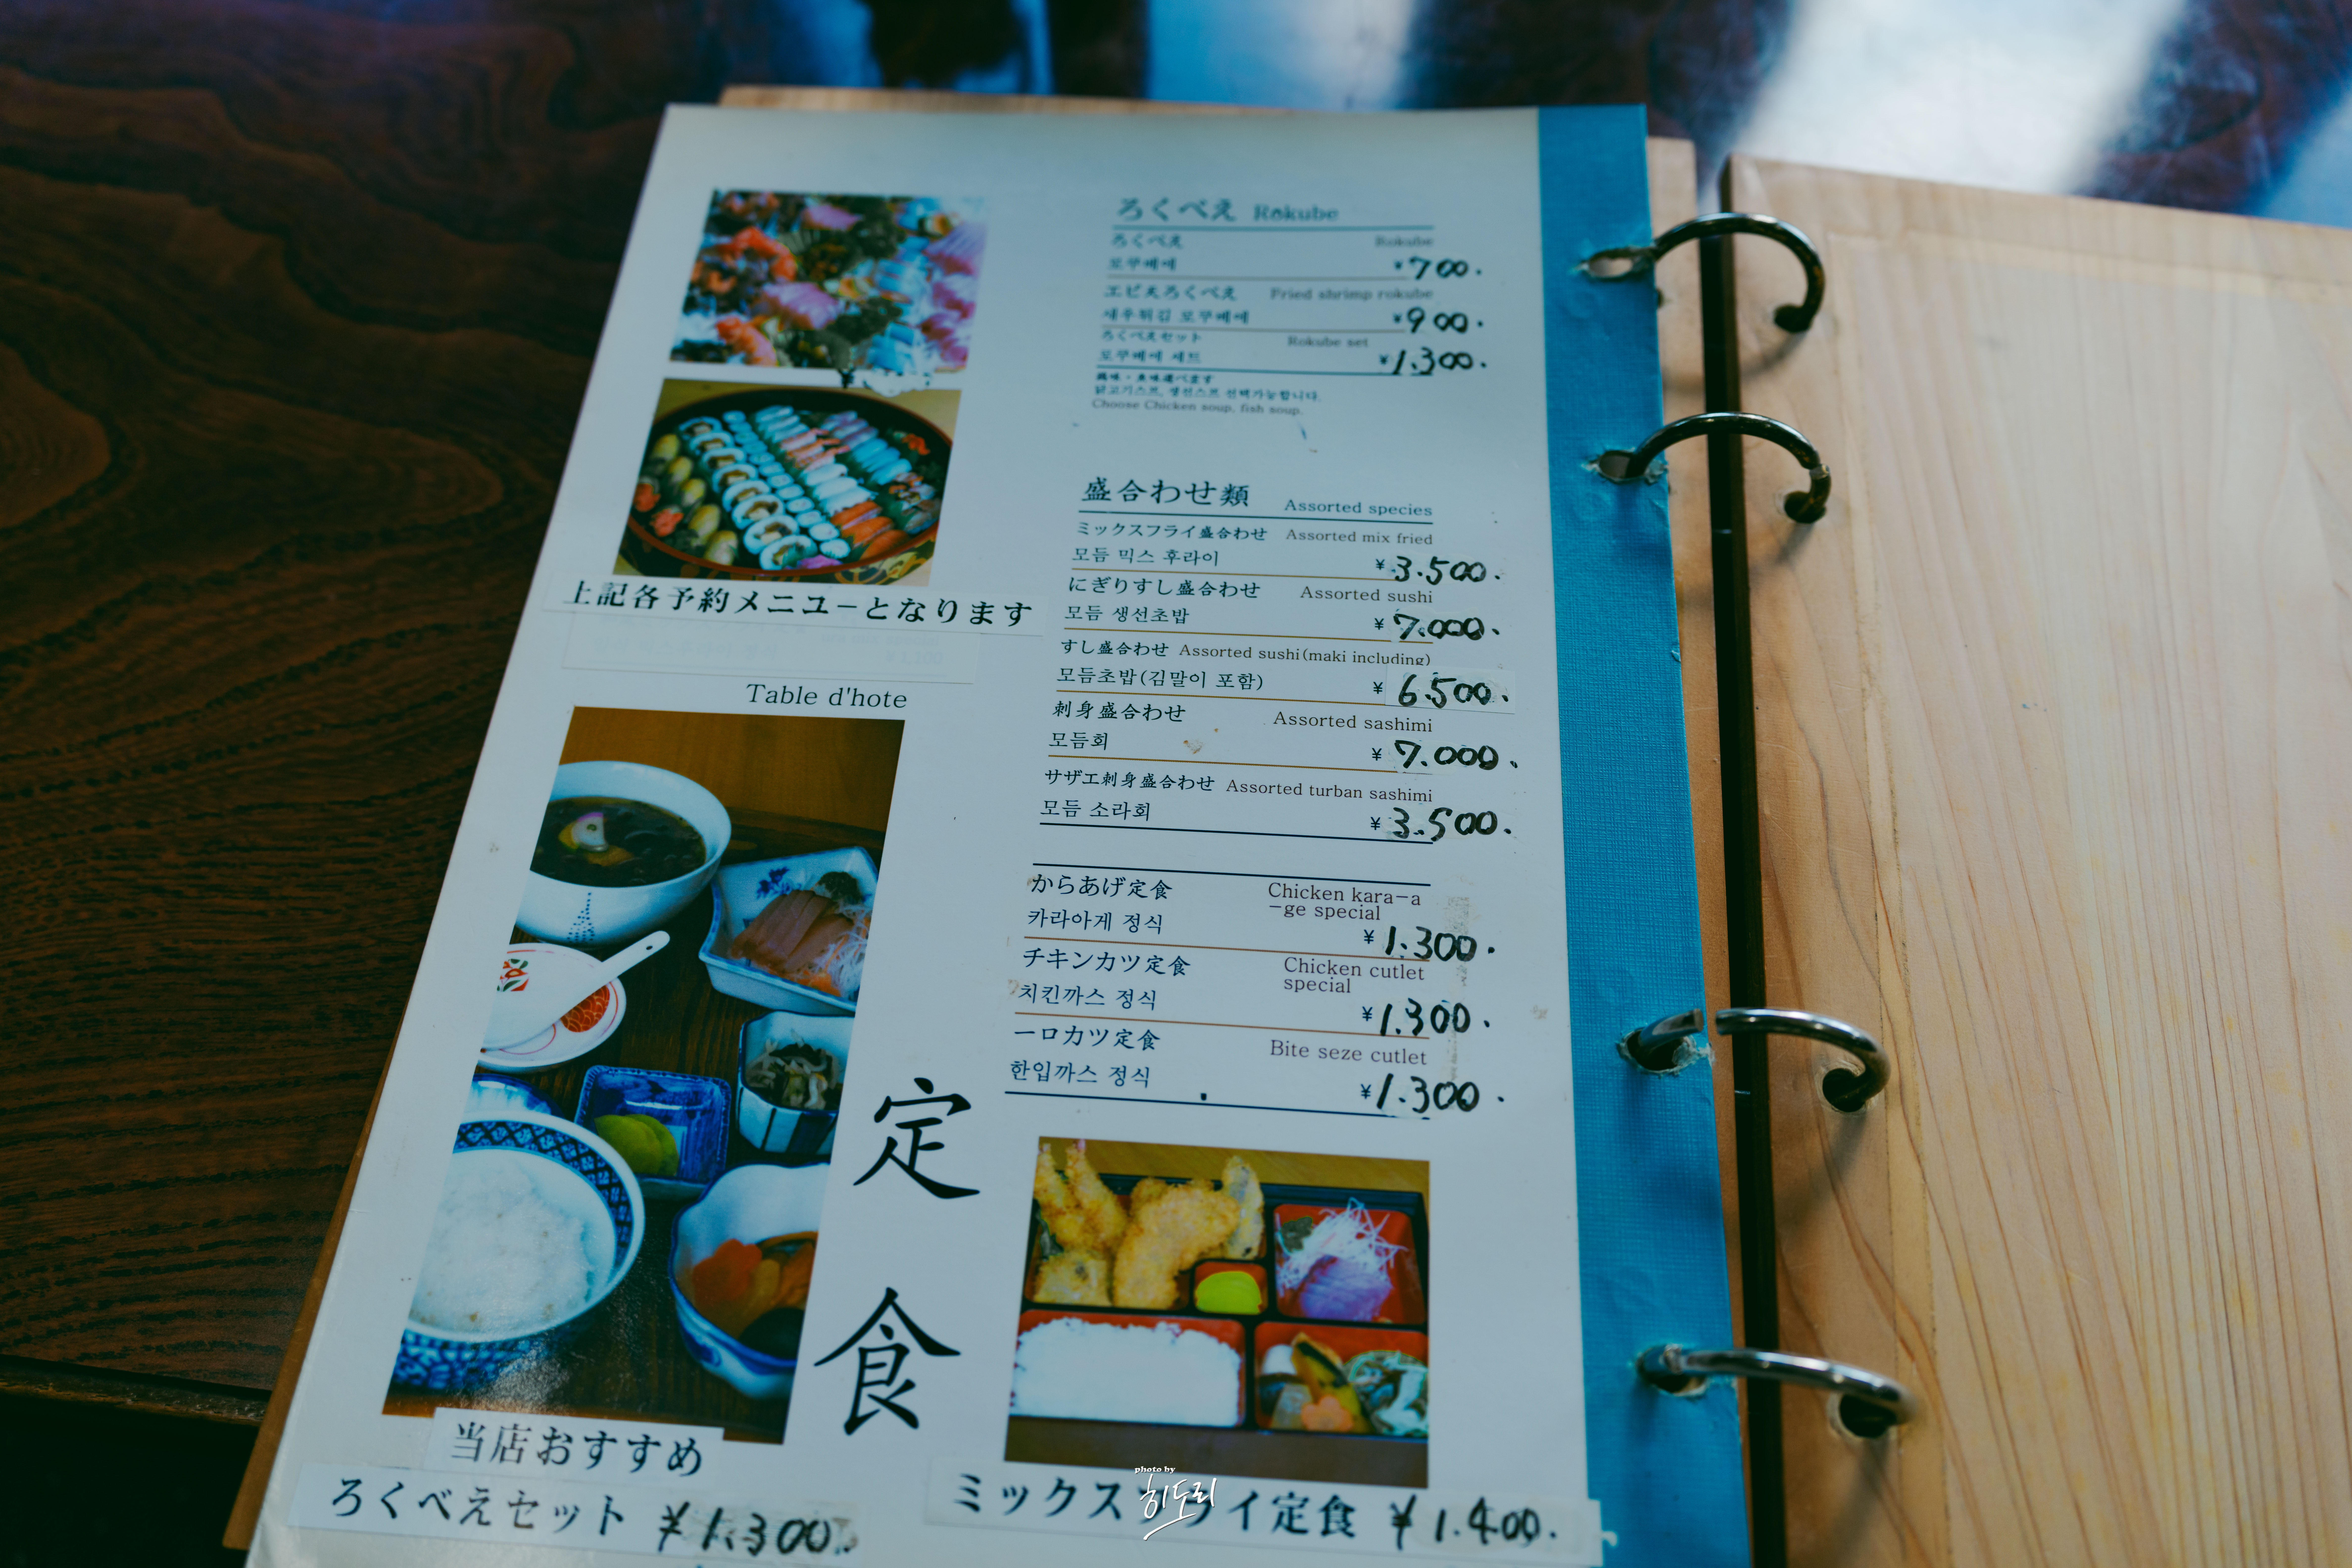 ろくべえ Rokube
ろくべえ Rokube
로쿠베에 ¥700.
エビ天ろくべえ Fried shrimp rokube
새우튀김 로쿠베에 ¥900.
ろくべえセット Rokube set
로쿠베에 세트 ¥1.300.
닭고기스프, 생선스프 선택가능합니다.
Choose Chicken soup, fish soup.
上記各予約メニューとなります
盛合わせ類 Assorted species
ミックスフライ盛合わせ Assorted mix fried
모듬 믹스 후라이 ¥3.500.
にぎりすし盛合わせ Assorted sushi
모듬 생선초밥 ¥7.000.
すし盛合わせ Assorted sushi(maki including)
모듬초밥(김말이 포함) ¥6.500.
刺身盛合わせ Assorted sashimi
모듬회 ¥7.000.
サザエ刺身盛合わせ Assorted turban sashimi
모듬 소라회 ¥3.500.
Table d'hote
からあげ定食 Chicken kara-a
-ge special
카라아게 정식 ¥1.300.
チキンカツ定食 Chicken cutlet
special
치킨까스 정식 ¥1.300.
一口カツ定食 Bite seze cutlet
한입까스 정식 ¥1.300.
定食
当店おすすめ
ろくべえセット ¥1.300.
ミックスフライ定食 ¥1.400.
photo by
히도리